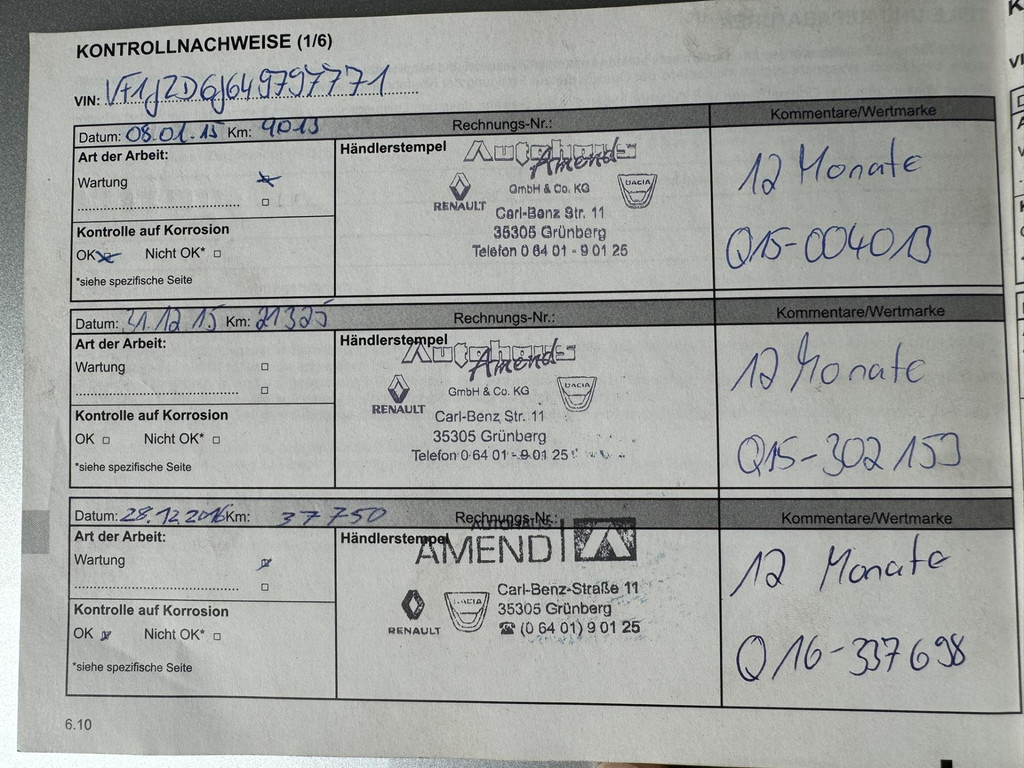 KONTROLLNACHWEISE (1/6)
VIN: VF1JZDGJ649797771
Datum: 08.01.15 Km: 9013 Rechnungs-Nr.: Kommentare/Wertmarke
Art der Arbeit:
Wartung
Kontrolle auf Korrosion
OK Nicht OK*
*siehe spezifische Seite
Händlerstempel
Autohaus
Amend
GmbH & Co. KG
RENAULT DACIA
Carl-Benz Str. 11
35305 Grünberg
Telefon 0 64 01 - 9 01 25
12 Monate
Q15-004013
Datum: 31.12.15 Km: 21325 Rechnungs-Nr.: Kommentare/Wertmarke
Art der Arbeit:
Wartung
Kontrolle auf Korrosion
OK Nicht OK*
*siehe spezifische Seite
Händlerstempel
Autohaus
Amend
GmbH & Co. KG
RENAULT DACIA
Carl-Benz Str. 11
35305 Grünberg
Telefon 0 64 01 - 9 01 25
12 Monate
Q15-302153
Datum: 28.12.2016 Km: 37750 Rechnungs-Nr.: Kommentare/Wertmarke
Art der Arbeit:
Wartung
Kontrolle auf Korrosion
OK Nicht OK*
*siehe spezifische Seite
Händlerstempel
AUTOHAUS
AMEND
RENAULT DACIA
Carl-Benz-Straße 11
35305 Grünberg
☎ (0 64 01) 9 01 25
12 Monate
Q16-337698
6.10